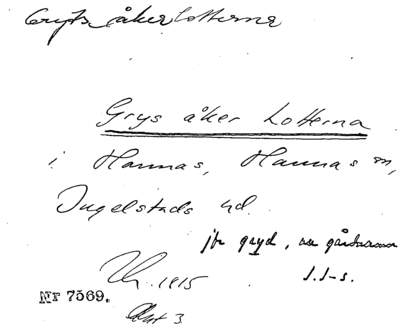 Gryts åkerlotterna
Grys åker lotterna
i Hannas, Hannas sn,
Ingelstads hd.
jfr gryd,
1915
J.J-s.
Nr 7569.
Akt 3